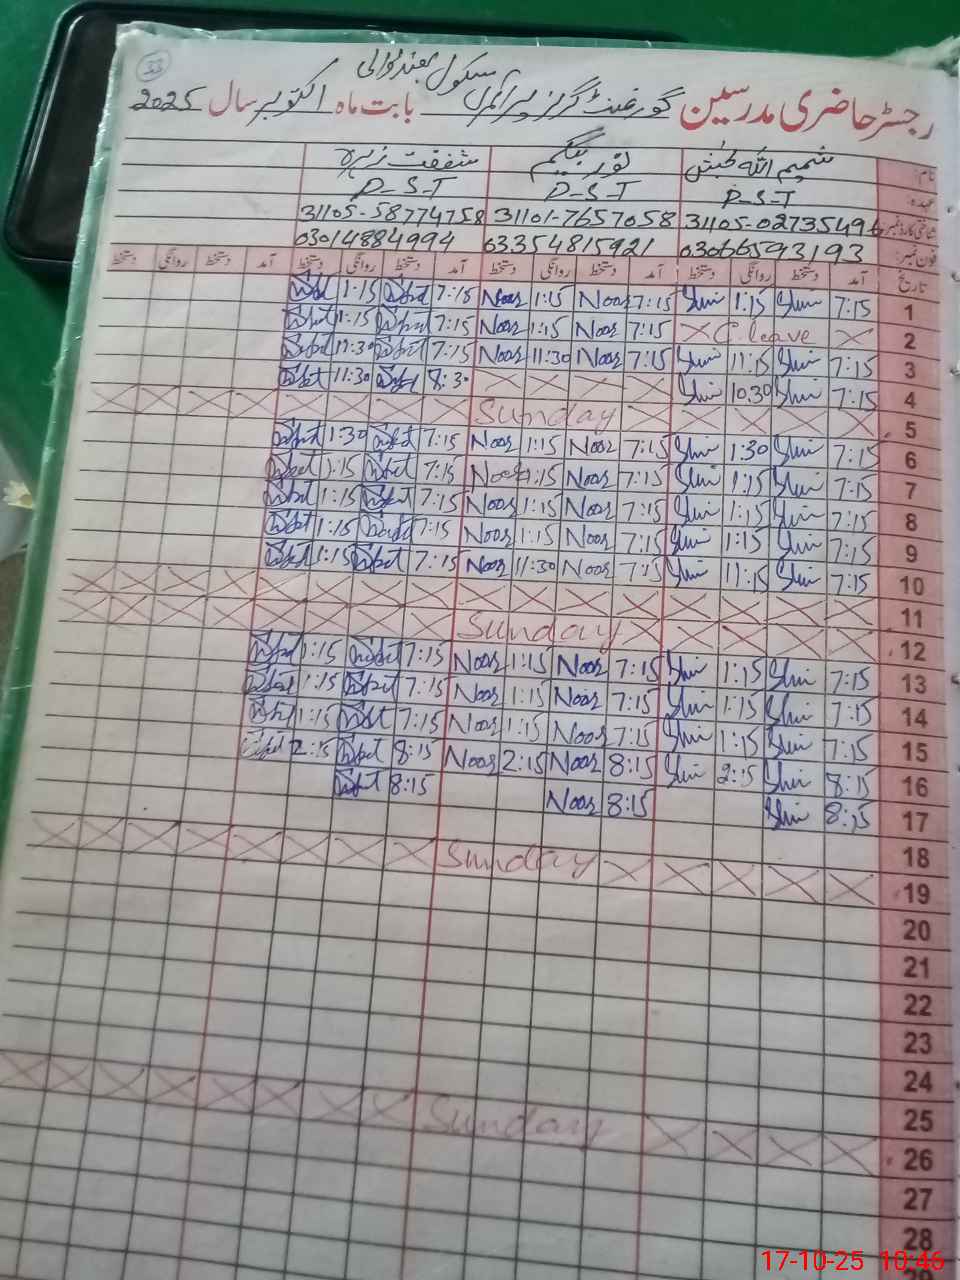 33
رجسٹر حاضری مدرسین گورنمنٹ گرلز پرائمری سکول بابت ماہ اکتوبر سال 2025
نام: شمیم اللہ بخش نور بیگم شفقت زہرہ
عہدہ: P-S-T P-S-T P-S-T
شناختی کارڈ نمبر: 31101-7657058 31105-58774758
فون نمبر: 03066593193 03354815921 03014884994
تاریخ آمد دستخط روانگی دستخط آمد دستخط روانگی دستخط آمد دستخط روانگی دستخط آمد دستخط روانگی دستخط
1 7:15 Shm 1:15 Shm 7:15 Noor 1:15 Noor 7:15 1:15
2 X C.leave X 7:15 Noor 1:15 Noor 7:15 1:15
3 7:15 Shm 11:15 Shm 7:15 Noor 11:30 Noor 7:15 11:30
4 7:15 Shm 10.30 Shm X X X X 8:30 11:30
5 X X X X X Sunday X X X X X X X X
6 7:15 Shm 1:30 Shm 7:15 Noor 1:15 Noor 7:15 1:30
7 7:15 Shm 1:15 Shm 7:15 Noor 1:15 Noor 7:15 1:15
8 7:15 Shm 1:15 Shm 7:15 Noor 1:15 Noor 7:15 1:15
9 7:15 Shm 1:15 Shm 7:15 Noor 1:15 Noor 7:15 1:15
10 7:15 Shm 11:15 Shm 7:15 Noor 11:30 Noor 7:15 1:15
11 X X X X X X X X X X X X X X X X
12 X X X X X Sunday X X X X X X X X
13 7:15 Shm 1:15 Shm 7:15 Noor 1:15 Noor 7:15 1:15
14 7:15 Shm 1:15 Shm 7:15 Noor 1:15 Noor 7:15 1:15
15 7:15 Shm 1:15 Shm 7:15 Noor 1:15 Noor 7:15 1:15
16 8:15 Shm 2:15 Shm 8:15 Noor 2:15 Noor 8:15 2:15
17 8:15 Shm 8:15 Noor 8:15
18
19 X X X X X Sunday X X X X X X X X
20
21
22
23
24
25
26 X X X X Sunday X X X X X X X X
27
28
17-10-25 10:46